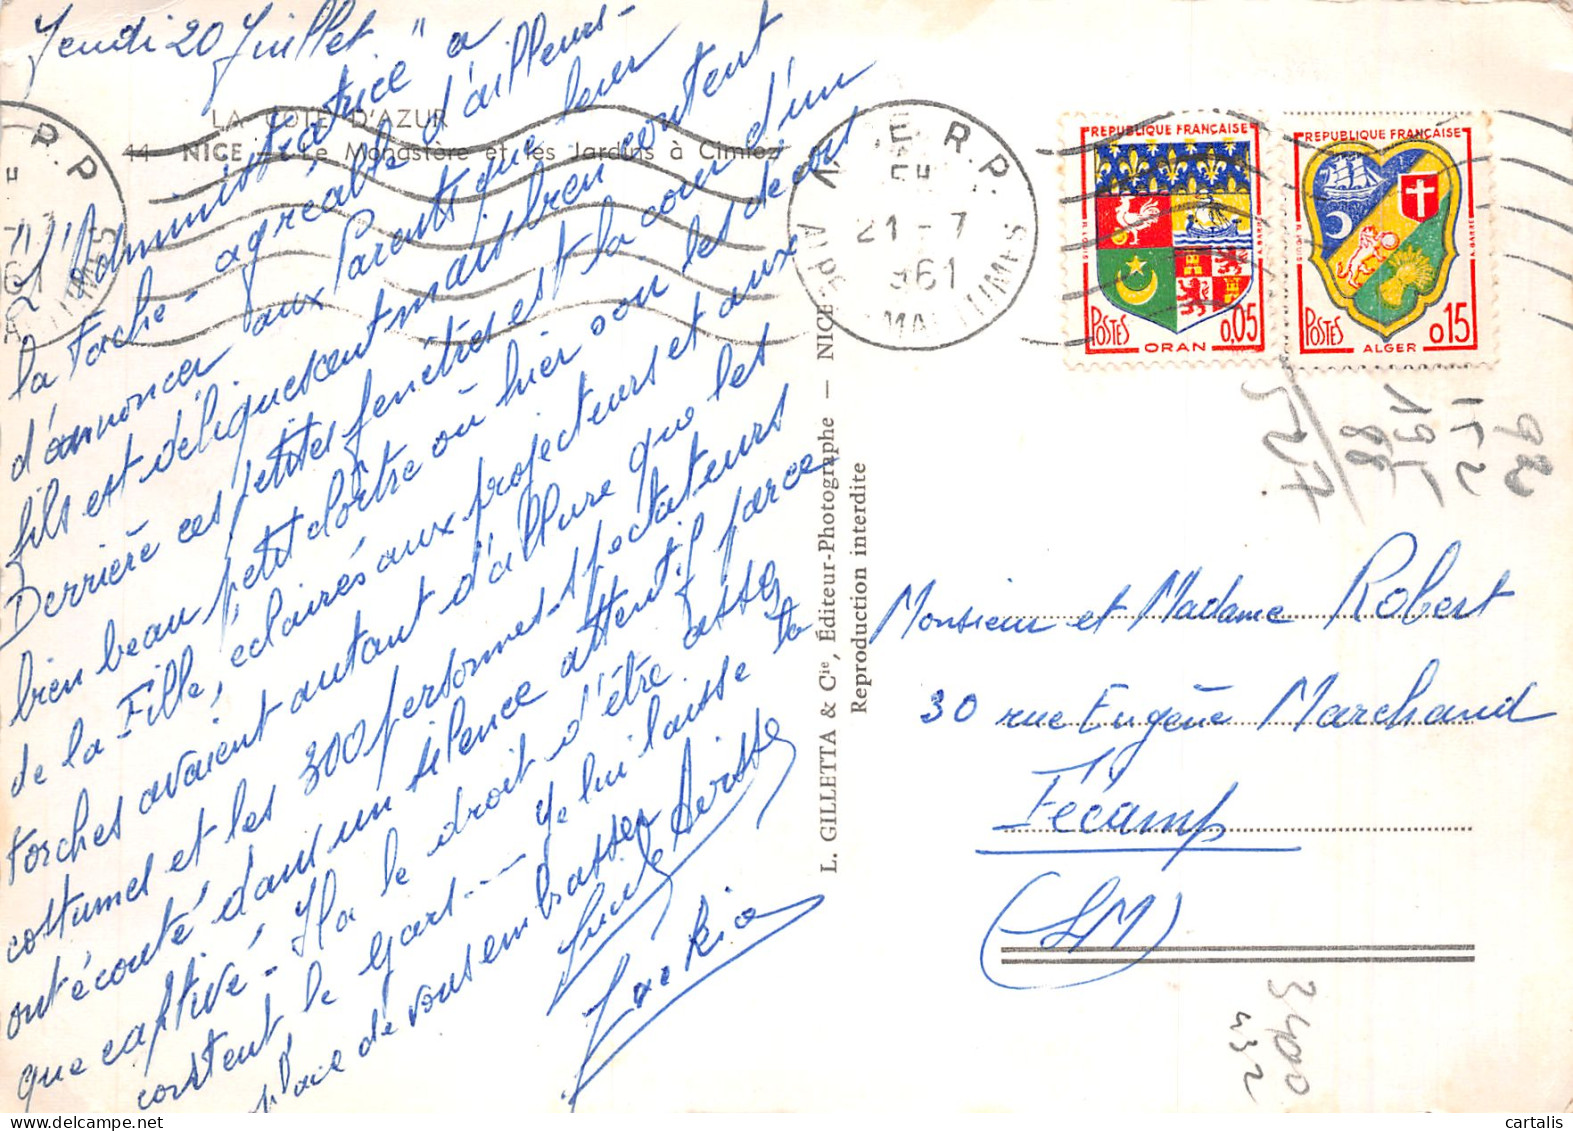 Jeudi 20 Juillet
LA CÔTE D'AZUR
44 NICE - Le Monastère et les Jardins à Cimiez
L' "Administratrice" a
la tâche - agréable d'ailleurs -
d'annoncer aux Parents que leur
fils est déliquescent mais bien content
Derrière ces petites fenêtres est la cour d'un
bien beau petit cloître où hier soir les décors
de la Fille, éclairés aux projecteurs et aux
torches avaient autant d'allure que les
costumes et les 300 personnes spectateurs
ont écouté dans un silence attentif parce
que captivé - Il a le droit d'être assez
content le gars --- Je lui laisse la
place de vous embrasser
L. GILLETTA & Cie, Éditeur-Photographe — NICE
Reproduction interdite
NICE R.P.
21 - 7
1961
ALPES MARITIMES
R.P.
REPUBLIQUE FRANÇAISE
POSTES
0,05
ORAN
REPUBLIQUE FRANÇAISE
POSTES
0,15
ALGER
Monsieur et Madame Robert
30 rue Eugène Marchand
Fécamp
(SM)
3400
432
cartalis